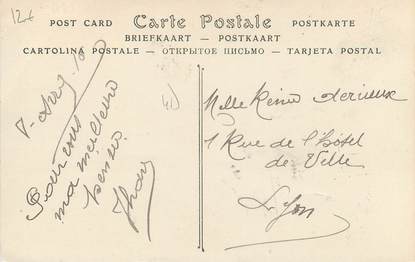 12€
POST CARD Carte Postale POSTKARTE
BRIEFKAART — POSTKAART
CARTOLINA POSTALE — ОТКРЫТОЕ ПИСЬМО — TARJETA POSTAL
Pour vous
ma meilleure
pensée
Melle Reine
1 Rue de l'hôtel
de Ville
Lyon